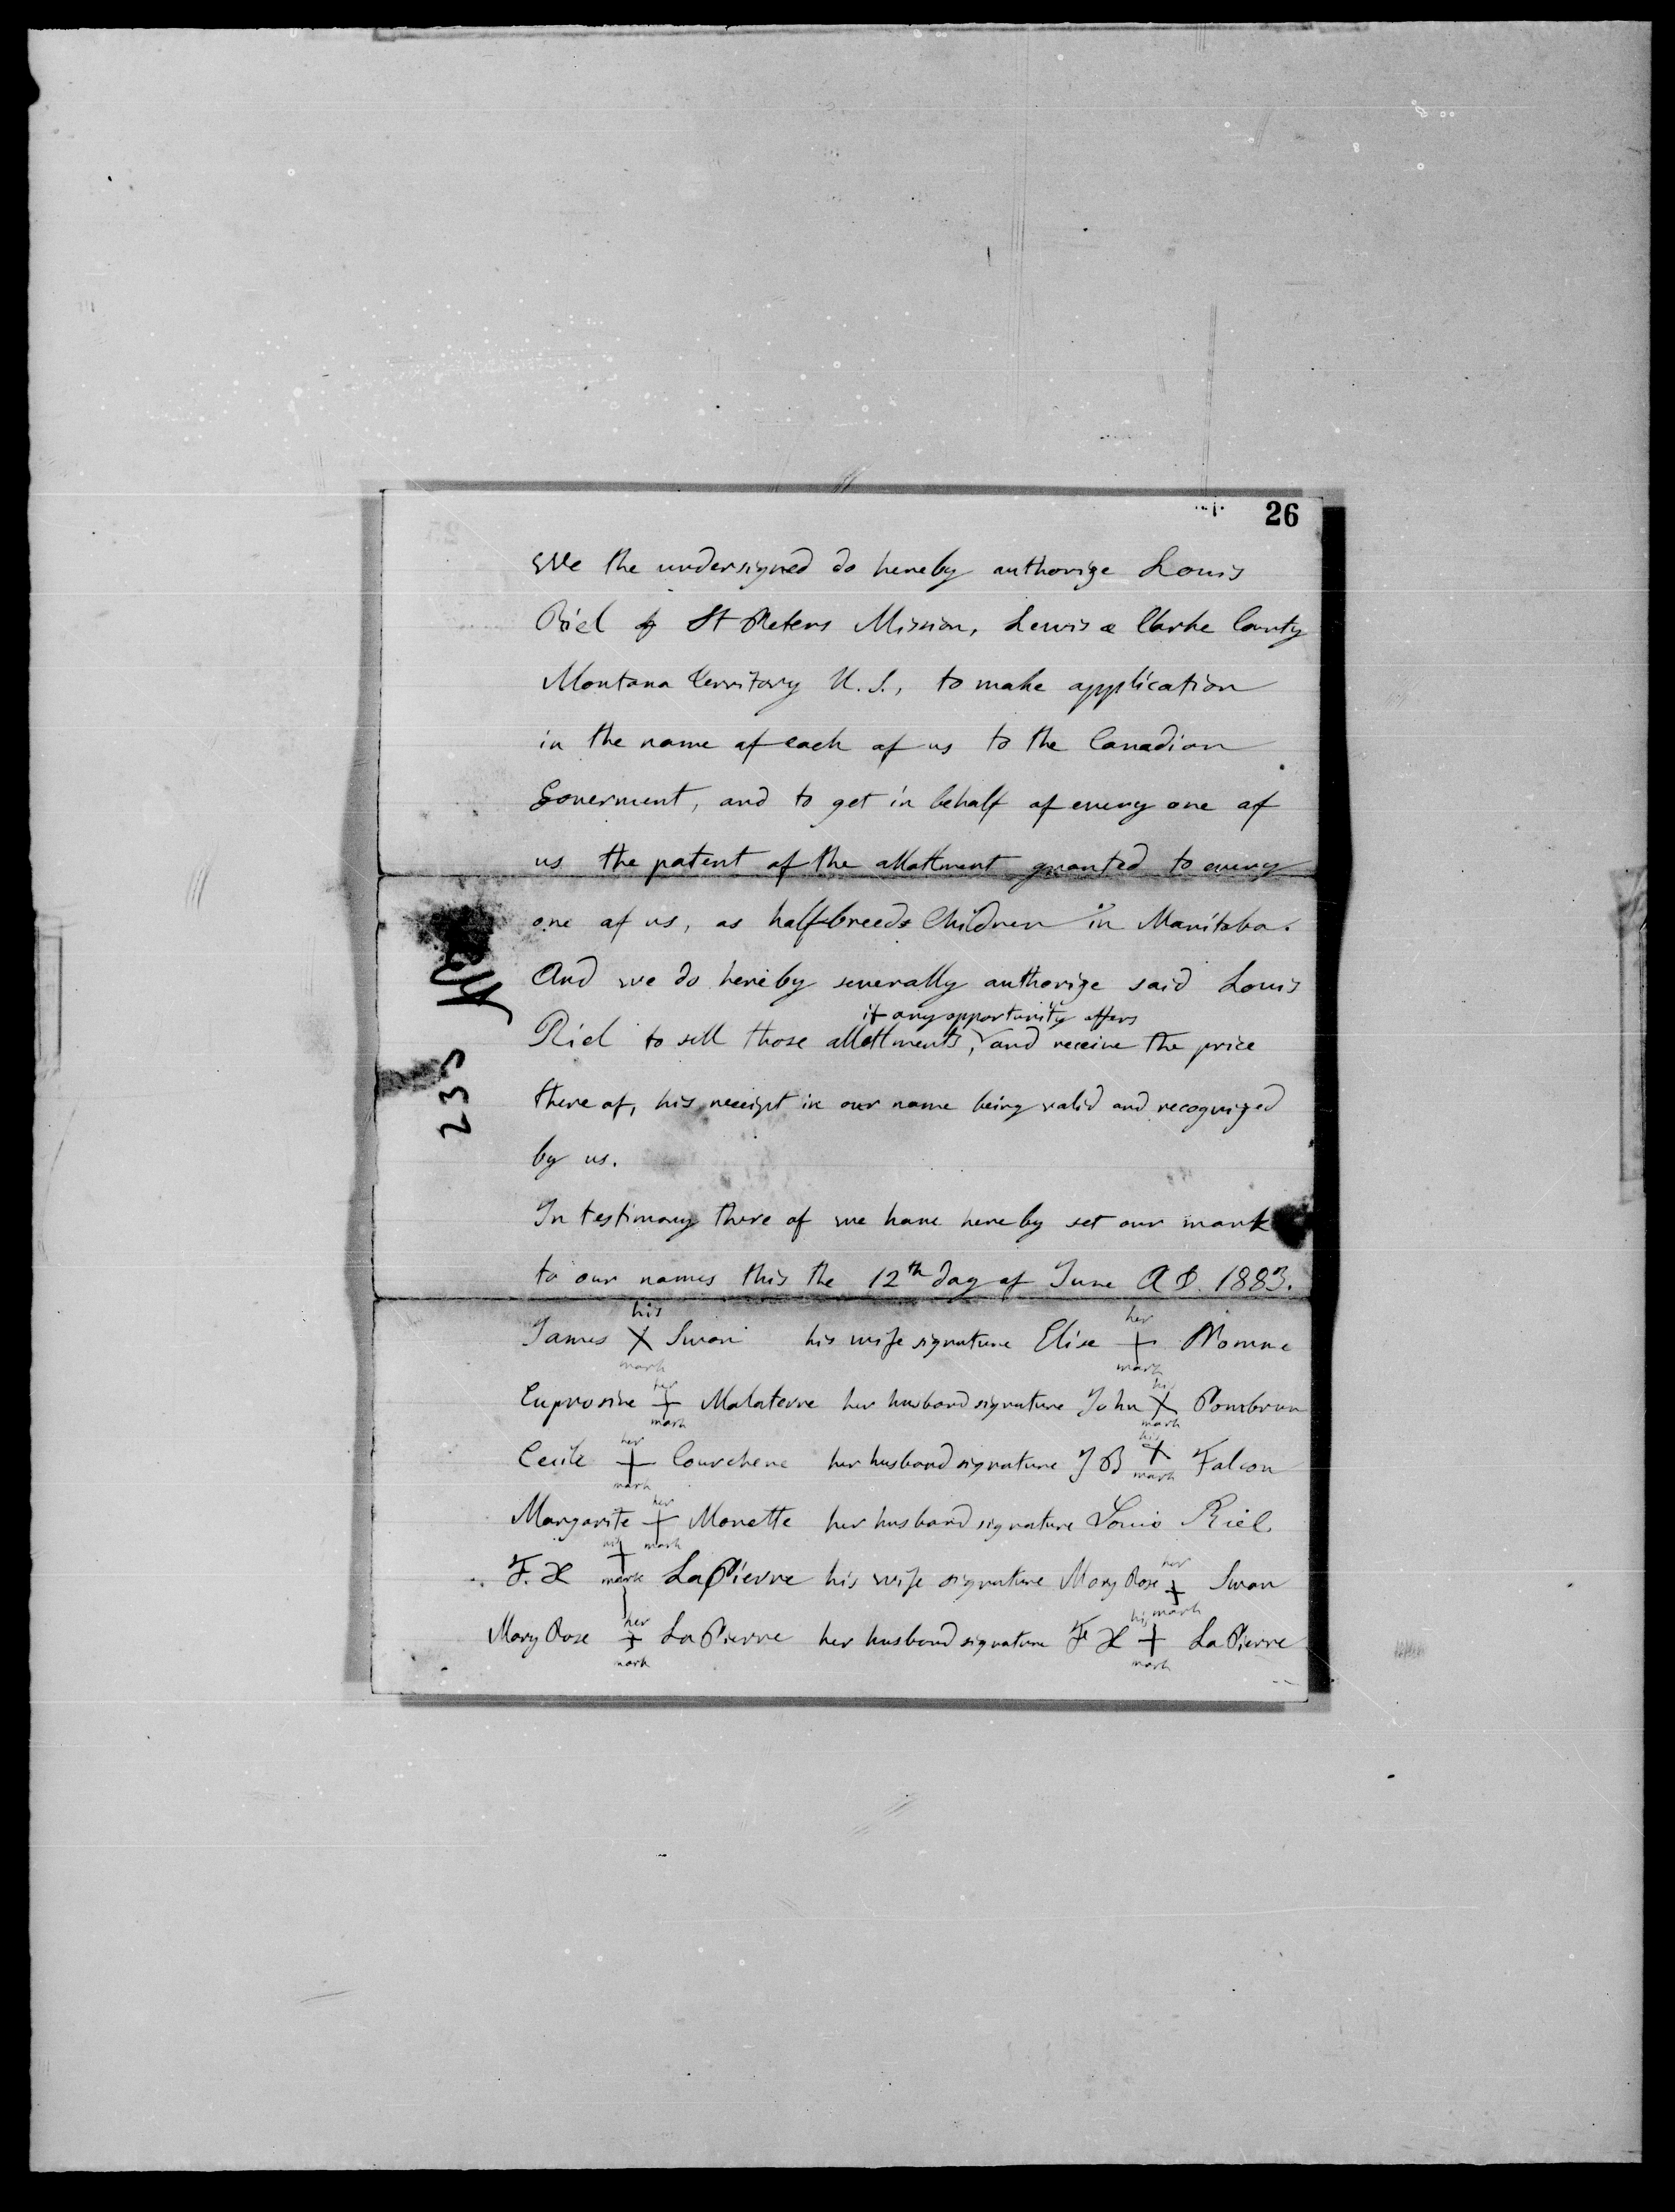 26
We the undersigned do hereby authorize Louis
Riel of St Peters Mission, Lewis & Clarke County
Montana Territory U.S., to make application
in the name of each of us to the Canadian
Goverment, and to get in behalf of every one of
us the patent of the allottment granted to every
one of us, as half-breeds Children in Manitoba.
And we do hereby severally authorize said Louis
if any opportunity offers
Riel to sell those allottments, and receive the price
there of, his receipt in our name being valid and recognized
by us.
In testimony there of we have hereby set our mark
to our names this the 12th day of June A D. 1883.
his her
James X Swan his wife signature Elise +
mark mark
her his
Euprosine + Malaterre her husband signature John X Pombrun
mark mark
her his
Cecile + Courchene her husband signature J B X Falcon
mark mark
her
Margarite + Monette her husband signature Louis Riel.
mark
his her
F. X + LaPierre his wife signature Mary Rose + Swan
mark mark
her his
Mary Rose + LaPierre her husband signature F X + LaPierre
mark mark
235